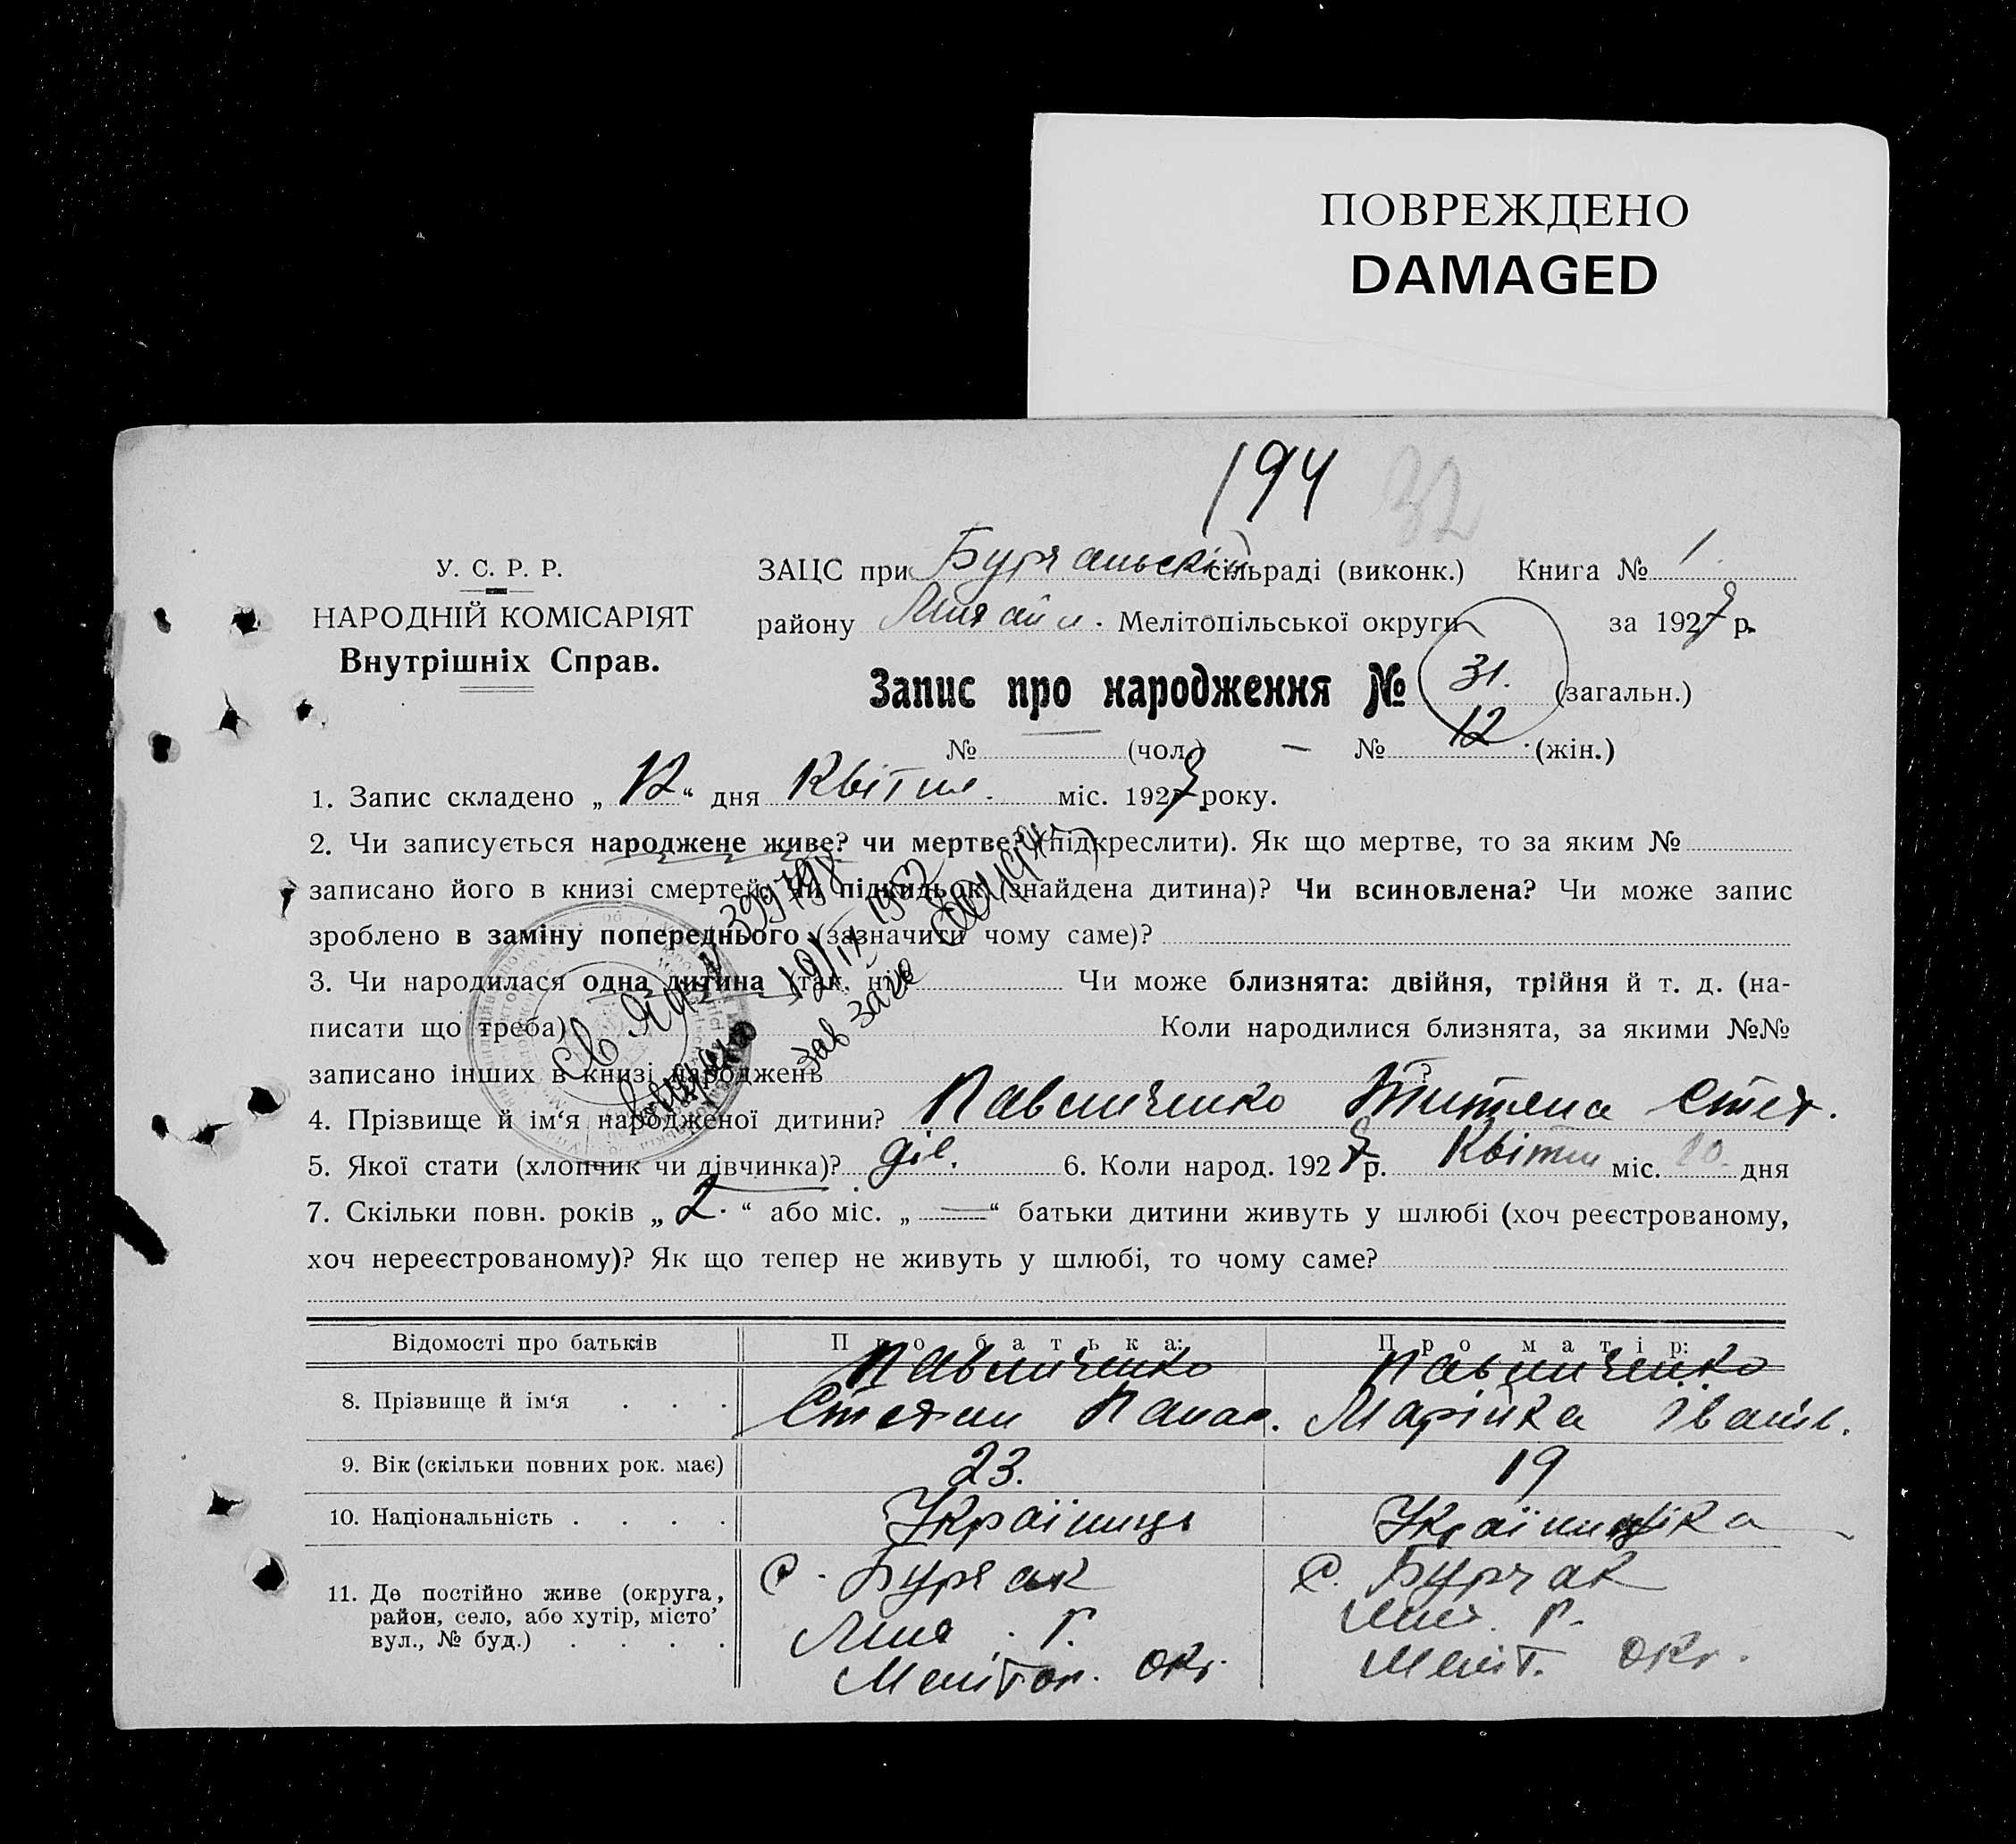 ПОВРЕЖДЕНО
DAMAGED
194 32
У. С. Р. Р.
НАРОДНІЙ КОМІСАРІЯТ
Внутрішніх Справ.
ЗАЦС при сільраді (виконк.) Книга № 1.
району Мелітопільської округи за 1927 р.
Запис про народження № 31. (загальн.)
№ (чол.) — № 12 (жін.)
1. Запис складено „ 12 “ дня Квітня міс. 192 року.
2. Чи записується народжене живе? чи мертве? (підкреслити). Як що мертве, то за яким №
записано його в книзі смертей. Чи підкидьок (знайдена дитина)? Чи всиновлена? Чи може запис
зроблено в заміну попереднього (зазначити чому саме)?
3. Чи народилася одна дитина (так, ні) Чи може близнята: двійня, трійня й т. д. (на-
писати що треба) Коли народилися близнята, за якими №№
записано інших в книзі народжень ?
4. Прізвище й ім‘я народженої дитини? Павличенко Степ.
5. Якої стати (хлопчик чи дівчинка)? дів. 6. Коли народ. 192 р. Квітня міс. 10. дня
7. Скільки повн. років „ 2. “ або міс. „ — “ батьки дитини живуть у шлюбі (хоч реєстрованому,
хоч нереєстрованому)? Як що тепер не живуть у шлюбі, то чому саме?
Відомості про батьків
Про батька:
Про матір:
8. Прізвище й ім‘я . . .
Павличенко
Степан Панас.
Павличенко
Марійка Іванів.
9. Вік (скільки повних рок. має)
23.
19
10. Національність . . . .
Українець
Українка
11. Де постійно живе (округа,
район, село, або хутір, місто
вул., № буд.) . . . .
с. Бурчак
Мих. Р.
Мелітоп. окр.
с. Бурчак
Мих. Р.
Меліт. окр.